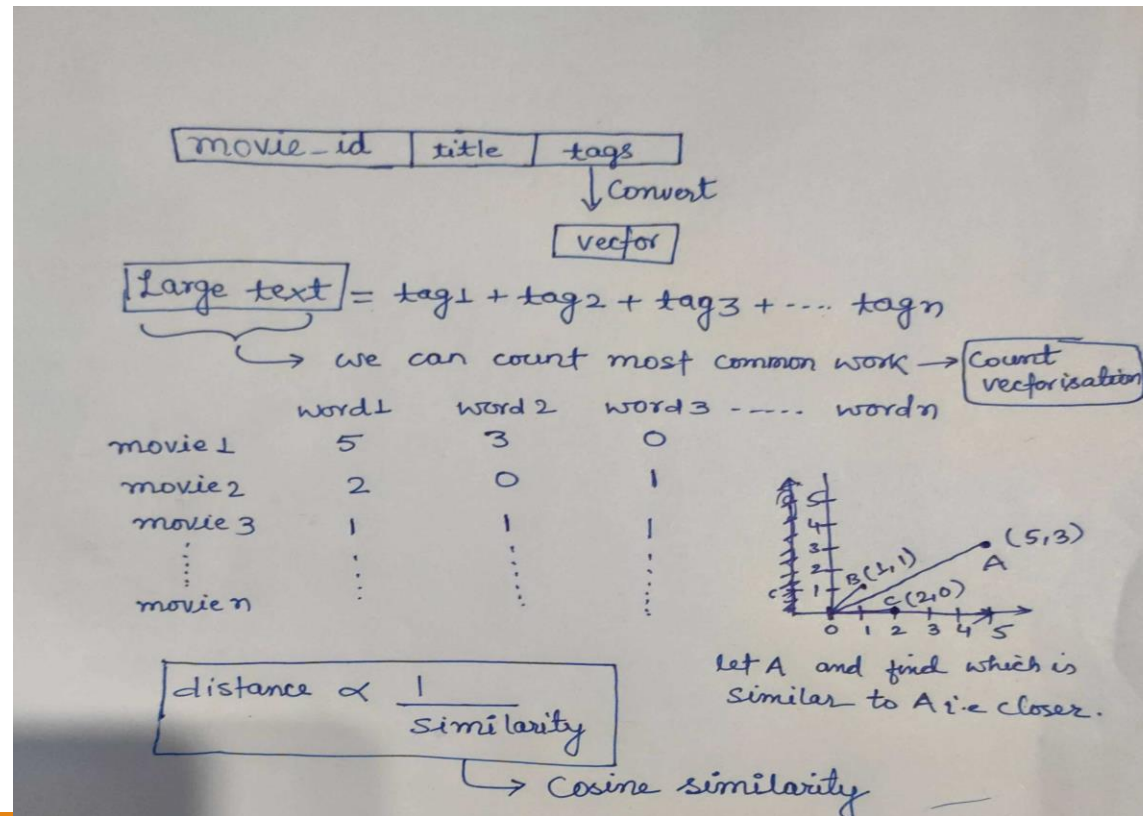 movie_id | title | tags
Convert
vector
Large text = tag1 + tag2 + tag3 + .... tagn
→ we can count most common work → Count vectorisation
word1 word2 word3 ----- wordn
movie1 5 3 0
movie2 2 0 1
movie3 1 1 1
movien
5
4
3
2
1
B(1,1)
C(2,0)
(5,3)
A
0 1 2 3 4 5
let A and find which is
similar to A i.e closer.
distance ∝ 1/similarity
→ Cosine similarity